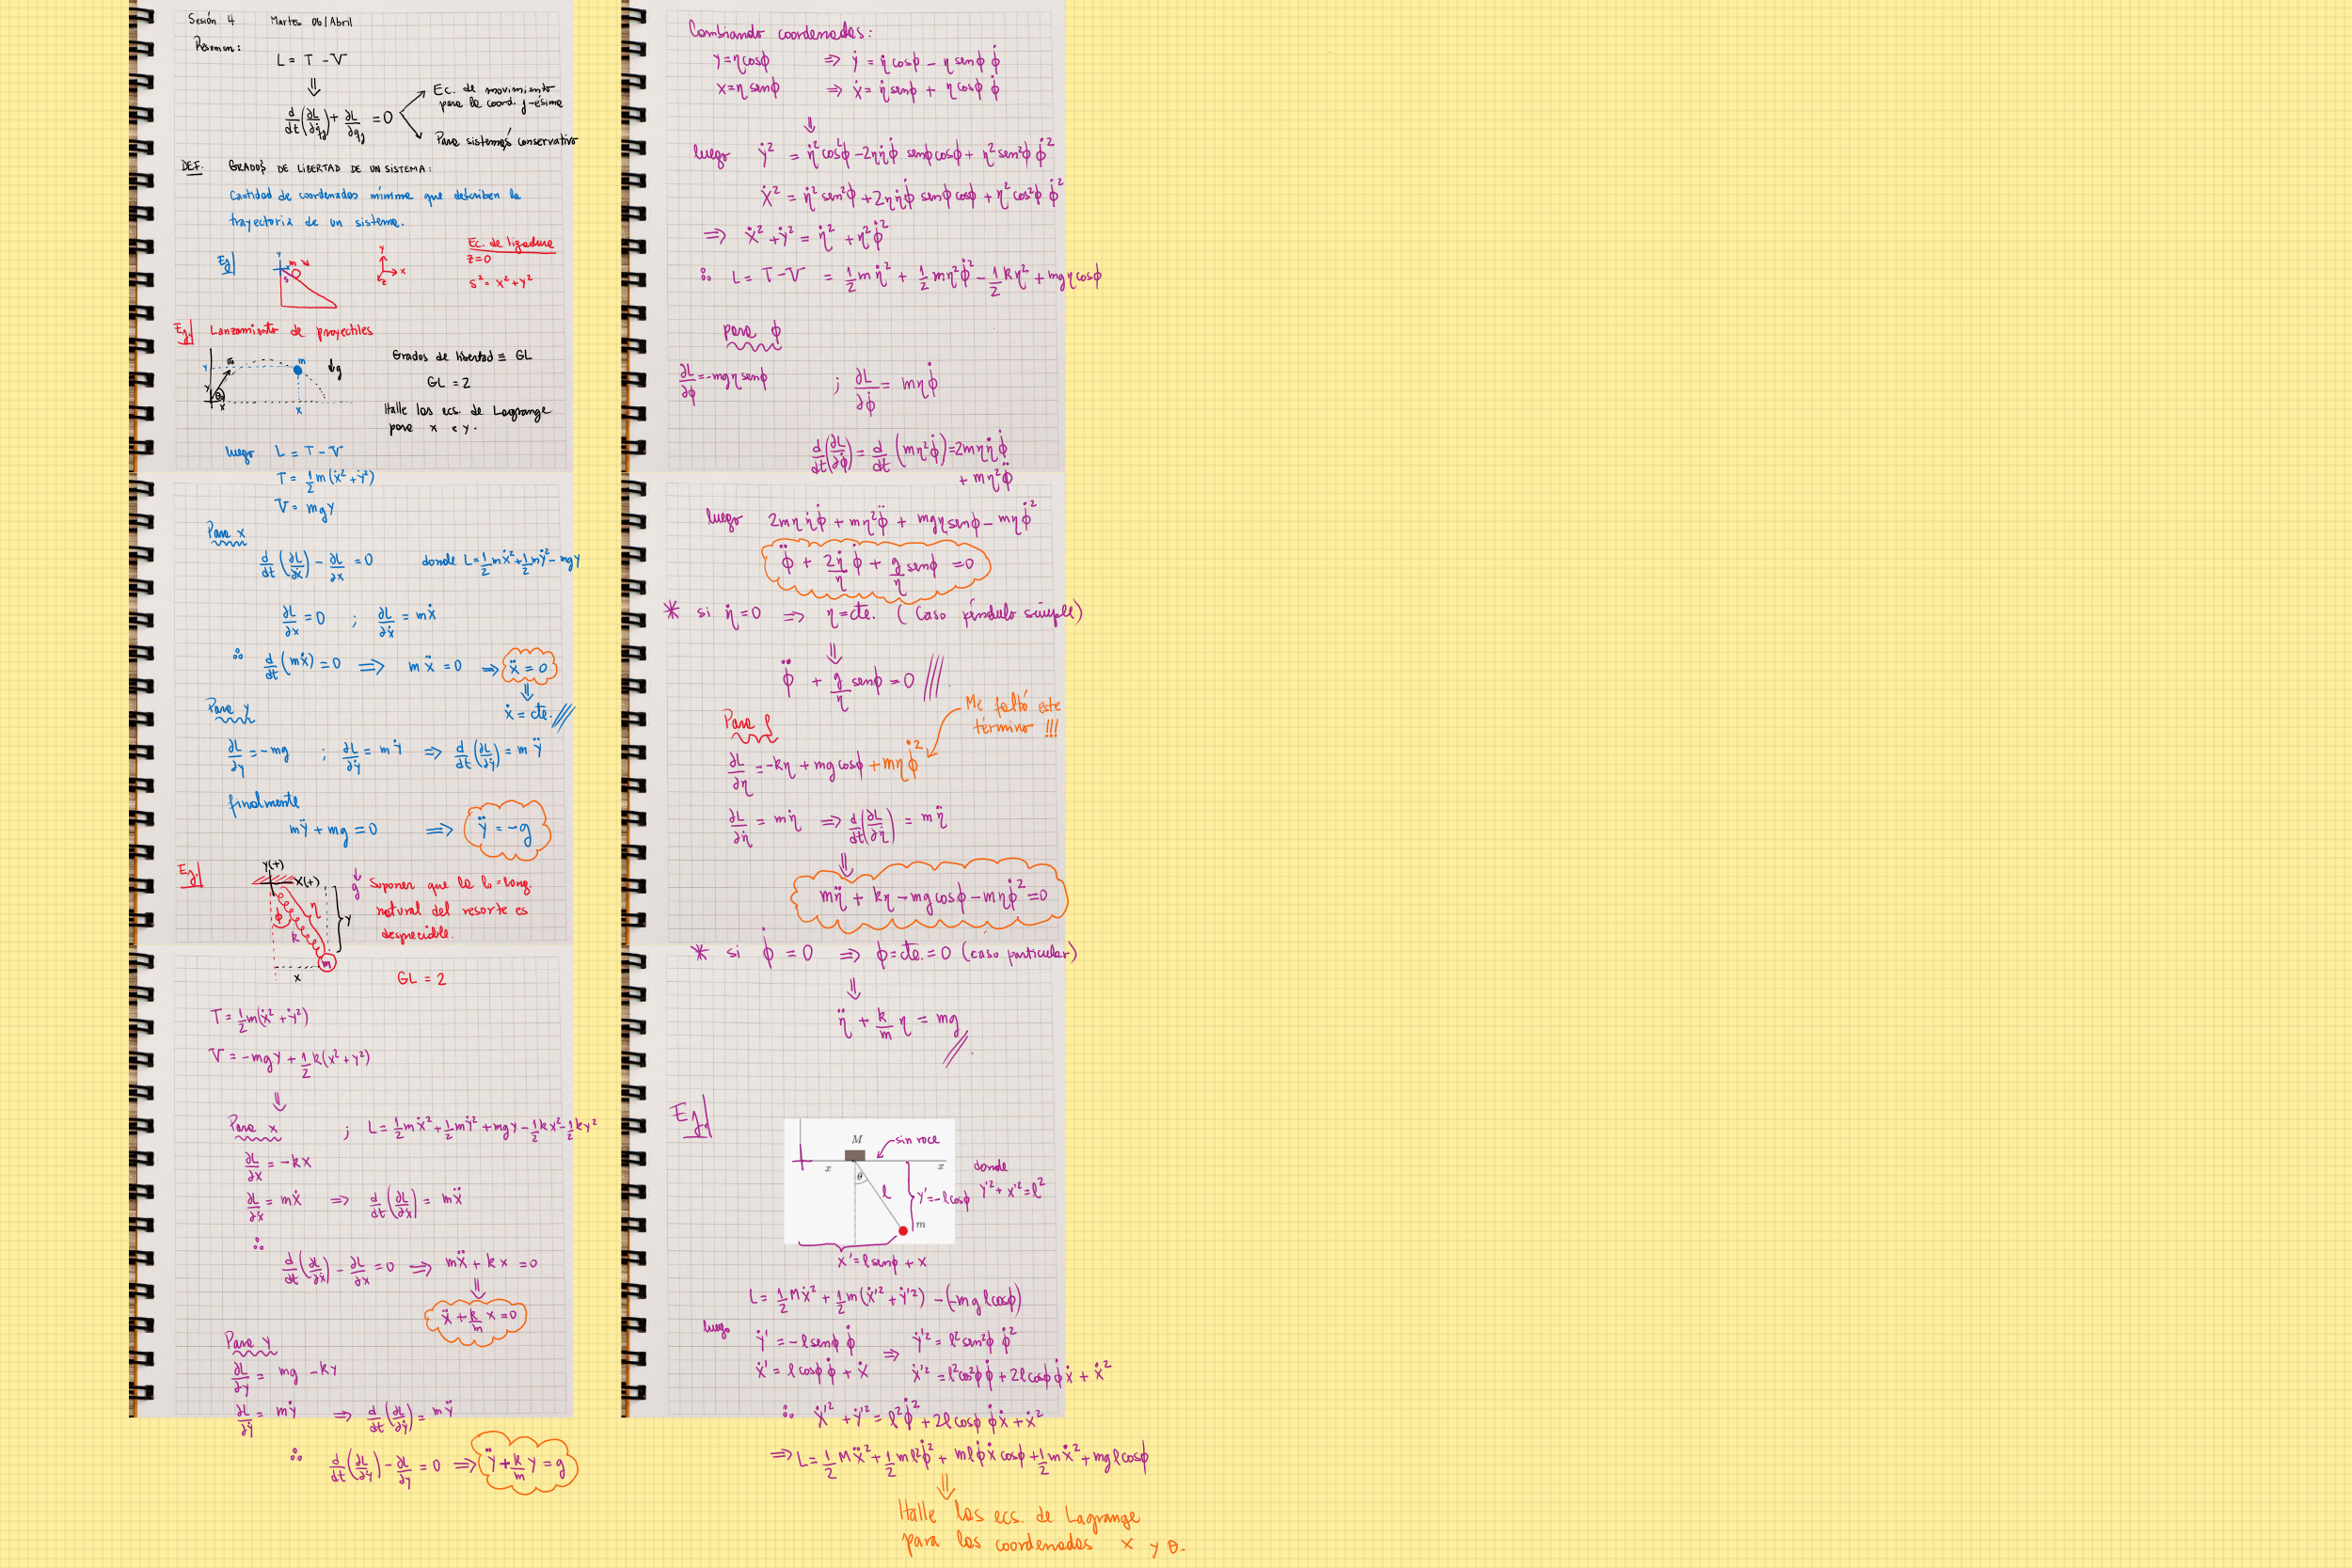 Sesión 4 Martes 06/Abril
Resumen:
L = T - V
⇓
d/dt(∂L/∂q̇j) + ∂L/∂qj = 0
Ec. de movimiento
para la coord. j-ésima
Para sistemas conservativo
DEF. GRADOS DE LIBERTAD DE UN SISTEMA:
Cantidad de coordenadas mínima que describen la
trayectoria de un sistema.
Ej
y
m
s
y
x
z
Ec. de ligadura
z=0
s² = x² + y²
Ej. Lanzamiento de proyectiles
y
m
↓g
x
x
Grados de libertad ≡ GL
GL = 2
Halle las ecs. de Lagrange
para x e y.
luego L = T - V
T = 1/2 m(ẋ² + ẏ²)
V = mgy
Para x
d/dt(∂L/∂ẋ) - ∂L/∂x = 0 donde L = 1/2 mẋ² + 1/2 mẏ² - mgy
∂L/∂x = 0 ; ∂L/∂ẋ = mẋ
∴ d/dt(mẋ) = 0 ⟹ mẍ = 0 ⟹ ẍ = 0
⇓
ẋ = cte. //
Para y
∂L/∂y = -mg ; ∂L/∂ẏ = mẏ ⟹ d/dt(∂L/∂ẏ) = mÿ
finalmente
mÿ + mg = 0 ⟹ ÿ = -g
Ej.
y(+)
x(+)
η
ϕ
k
y
m
x
↓g
Suponer que la lo = long.
natural del resorte es
despreciable.
GL = 2
T = 1/2 m(ẋ² + ẏ²)
V = -mgy + 1/2 k(x² + y²)
⇓
Para x ; L = 1/2 mẋ² + 1/2 mẏ² + mgy - 1/2 kx² - 1/2 ky²
∂L/∂x = -kx
∂L/∂ẋ = mẋ ⟹ d/dt(∂L/∂ẋ) = mẍ
∴
d/dt(∂L/∂ẋ) - ∂L/∂x = 0 ⟹ mẍ + kx = 0
⇓
ẍ + k/m x = 0
Para y
∂L/∂y = mg - ky
∂L/∂ẏ = mẏ ⟹ d/dt(∂L/∂ẏ) = mÿ
∴ d/dt(∂L/∂ẏ) - ∂L/∂y = 0 ⟹ ÿ + k/m y = g
Cambiando coordenadas:
y = η cosϕ ⟹ ẏ = η̇ cosϕ - η senϕ ϕ̇
x = η senϕ ⟹ ẋ = η̇ senϕ + η cosϕ ϕ̇
⇓
luego ẏ² = η̇² cos²ϕ - 2ηη̇ϕ̇ senϕ cosϕ + η² sen²ϕ ϕ̇²
ẋ² = η̇² sen²ϕ + 2ηη̇ϕ̇ senϕ cosϕ + η² cos²ϕ ϕ̇²
⟹ ẋ² + ẏ² = η̇² + η²ϕ̇²
∴ L = T - V = 1/2 mη̇² + 1/2 mη²ϕ̇² - 1/2 kη² + mgη cosϕ
para ϕ
∂L/∂ϕ = -mgη senϕ ; ∂L/∂ϕ̇ = mηϕ̇
d/dt(∂L/∂ϕ̇) = d/dt (mη²ϕ̇) = 2mηη̇ϕ̇
+ mη²ϕ̈
luego 2mηη̇ϕ̇ + mη²ϕ̈ + mgη senϕ - mηϕ̇²
ϕ̈ + 2η̇/η ϕ̇ + g/η senϕ = 0
* si η̇ = 0 ⟹ η = cte. (Caso péndulo simple)
⇓
ϕ̈ + g/η senϕ = 0 ///
Para ρ
Me faltó este
término !!!
∂L/∂η = -kη + mg cosϕ + mηϕ̇²
∂L/∂η̇ = mη̇ ⟹ d/dt(∂L/∂η̇) = mη̈
⇓
mη̈ + kη - mg cosϕ - mηϕ̇² = 0
* si ϕ̇ = 0 ⟹ ϕ = cte. = 0 (caso particular)
⇓
η̈ + k/m η = mg //
Ej
M
sin roce
x
x
θ
l
y' = -l cosϕ
m
donde
y'² + x'² = l²
x' = l senϕ + x
L = 1/2 Mẋ² + 1/2 m(ẋ'² + ẏ'²) - (-mg l cosϕ)
luego
ẏ' = -l senϕ ϕ̇ ⟹ ẏ'² = l² sen²ϕ ϕ̇²
ẋ' = l cosϕ ϕ̇ + ẋ ẋ'² = l² cos²ϕ ϕ̇ + 2l cosϕ ϕ̇ẋ + ẋ²
∴ ẋ'² + ẏ'² = l²ϕ̇² + 2l cosϕ ϕ̇ẋ + ẋ²
⟹ L = 1/2 Mẍ² + 1/2 ml²ϕ̇² + mlϕ̇ẋ cosϕ + 1/2 mẋ² + mgl cosϕ
⇓
Halle las ecs. de Lagrange
para las coordenadas x y θ.